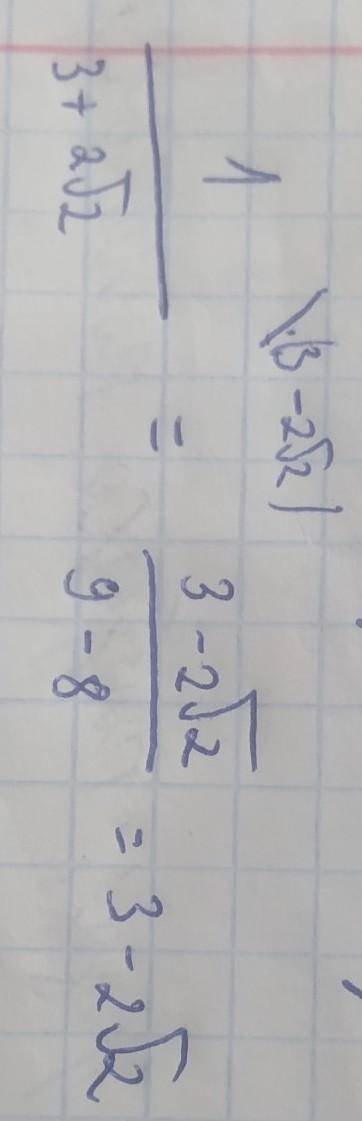 1 \(3 - 2√2)
3 + 2√2
=
3 - 2√2
9 - 8
= 3 - 2√2